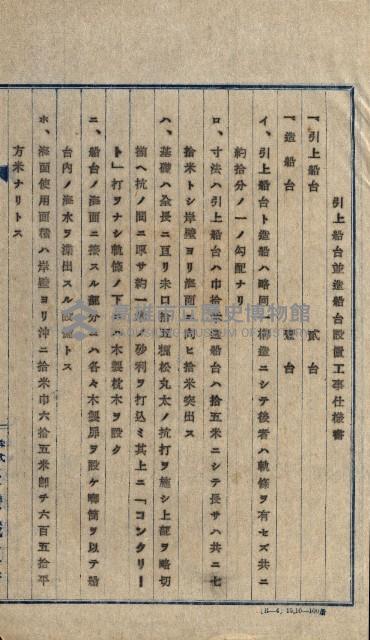 引上船台並造船台設置工事仕様書
一引上船台 貳台
一造船台 壹台
イ、引上船台ト造船ハ略同一構造ニシテ後者ハ軌條ヲ有セズ共ニ
約拾分ノ一ノ勾配ナリ
ロ、寸法ハ引上船台ハ巾拾米造船台ハ拾五米ニシテ長サハ共ニ七
拾米トシ岸壁ヨリ海面ニ向ヒ拾米突出ス
ハ、基礎ハ全長ニ亘リ末口拾五糎松丸太ノ杭打ヲ施シ上部ヲ略切
揃ヘ杭ノ間ニ厚サ約一米砂利ヲ打込ミ其上ニ「コンクリー
ト」打ヲナシ軌條ノ下ニ木製枕木ヲ設ク
ニ、船台ノ海面ニ接スル部分ニハ各々木製扉ヲ設ケ喞筒ヲ以テ船
台内ノ海水ヲ澑出スル設備トス
ホ、海面使用面積ハ岸壁ヨリ沖ニ拾米巾六拾五米郎チ六百五拾平
方米ナリトス
高雄市立歷史博物館
KAOHSIUNG MUSEUM OF HISTORY
(B—4) 15,10—100冊